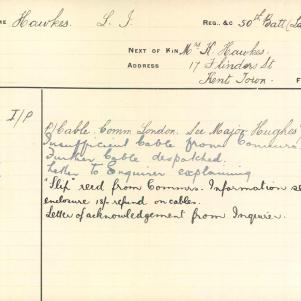 ME Hawkes. L. J. REG. &C 50th Batt
NEXT OF KIN Mrs H. Hawkes.
ADDRESS 17 Flinders St
Kent Town. F
I/P
P/Cable. Comm. London. See Major Hughes
Insufficient Cable from Commrs.
Further Cable despatched.
Letter to Enquirer explaining
"Slip" recd from Commrs. Information se
enclosure 1sp. refund on cables.
Letter of acknowledgement from Inquirer.